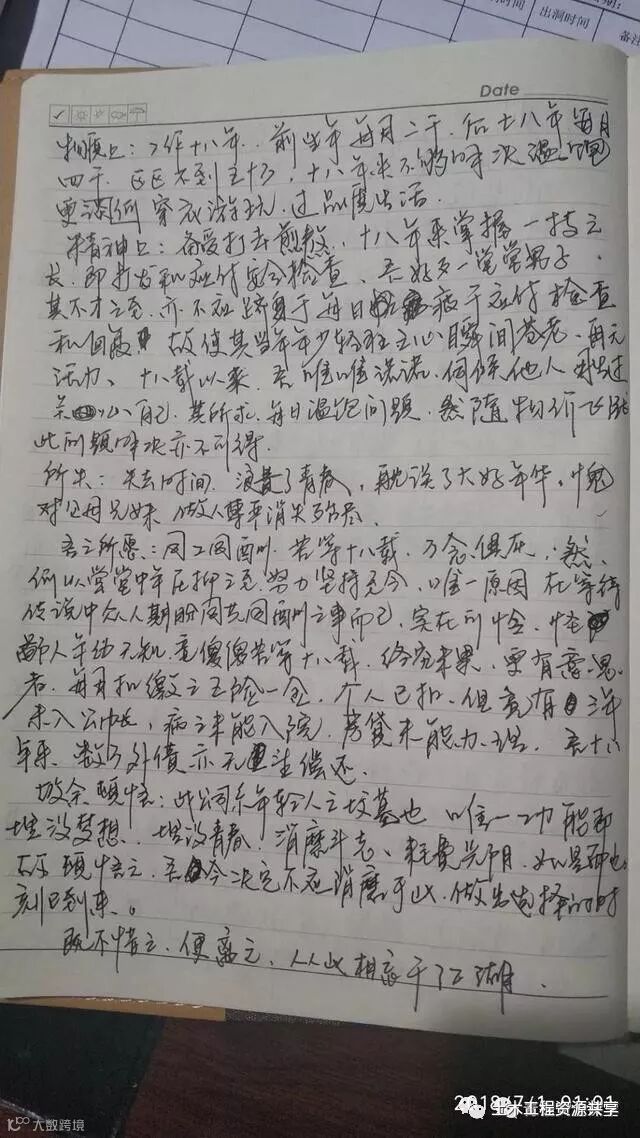 时间
出洞时间
备注
Date
物质上：工作十八年，前当年每月二千，后七八年每月
四千，区区不到五十万，十八年来不够解决温饱
更谈何穿衣游玩，过品质生活。
精神上：备受打击煎熬，十八年来掌握一技之
长，即打发和应付安全检查，吾好歹一堂堂男子，
其不才之至，亦不应跻身于每日疲于应付检查
和回复，故使其当年年少轻狂之心瞬间苍老，再无
活力，十八载以来，吾唯唯诺诺，伺候他人
自己，其所求，每日温饱问题，然随物价飞涨
此问题解决亦不可得。
所失：失去时间，浪费了青春，耽误了大好年华，愧
对父母兄妹，做人尊严消失殆尽。
吾之所愿：同工同酬，苦等十八载，万念俱灰，然
何以堂堂中年压抑之至，努力坚持至今，唯一原因在等待
传说中众人期盼同工同酬之事而已，实在可怜，怪
鄙人年幼不知，竟傻傻苦等十八载，终究未果，更有
者，每月扣缴之五险一金，个人已扣，但竟有三年
未入公帐，病之未能入院，房贷未能办理，吾十八
年来，数万外债亦无法偿还。
故余顿悟：此公司系年轻人之坟墓也，唯一功能即
埋没梦想，埋没青春，消磨斗志，耗费光阴，如是而已
故顿悟之，吾今决定不应消磨于此，做出选择的时
刻已到来。
既不惜之，便离之，从此相忘于江湖。
2018/7/1 01:01
土木工程资源课堂
大数跨境